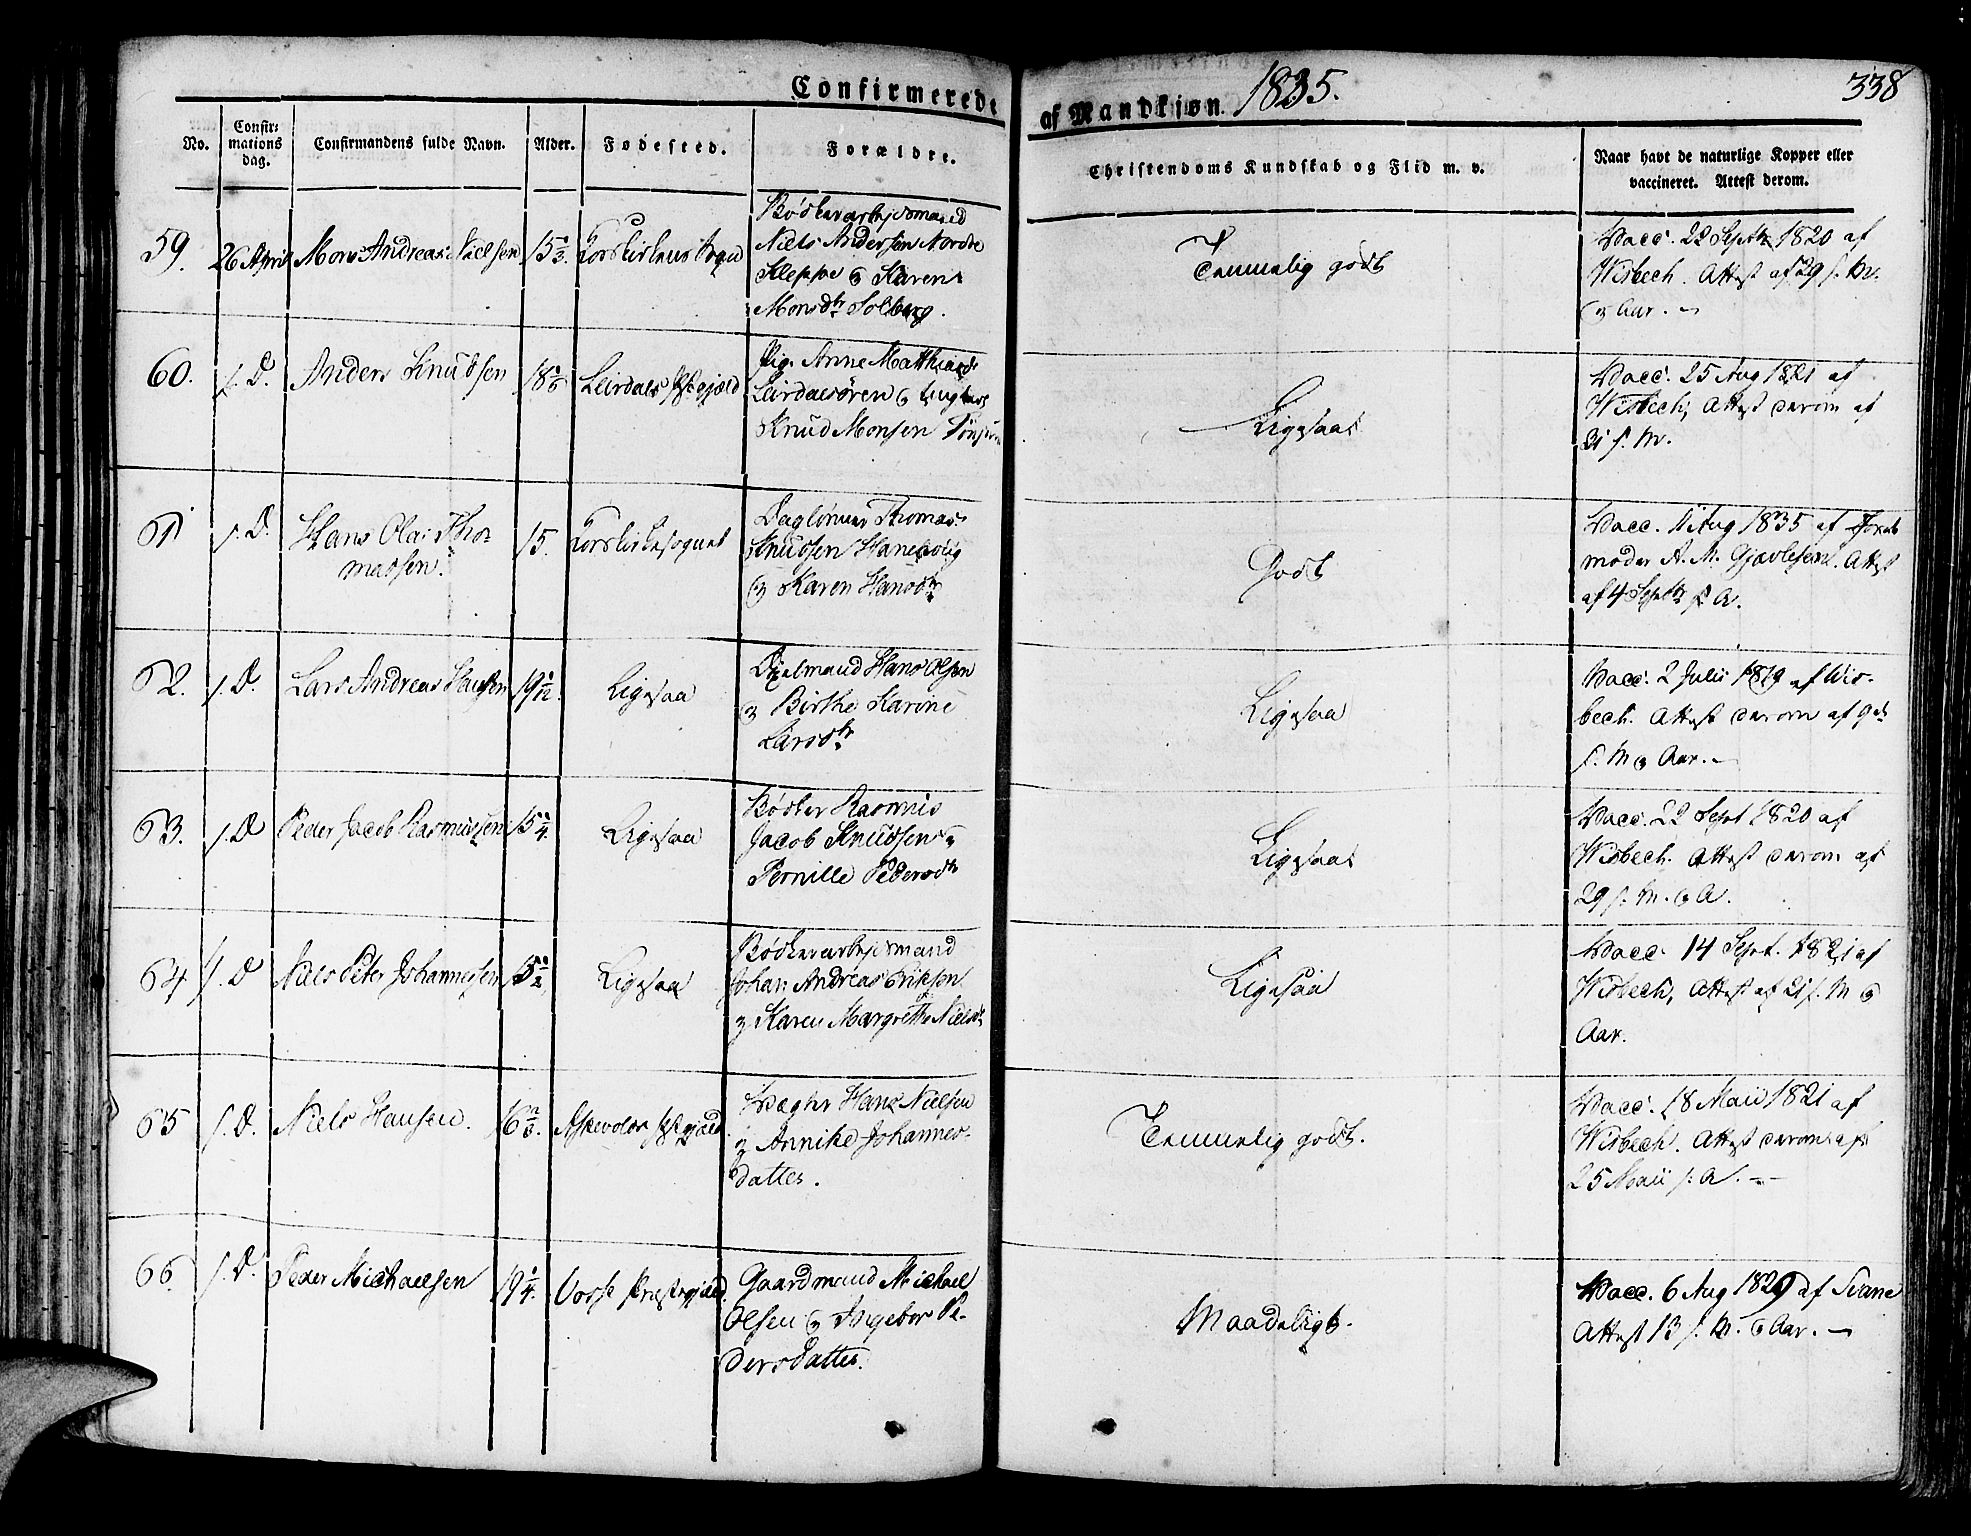 Confirmerede
af Mandkjøn. 1835.
338
No.
Confir-
mations
dag.
Confirmandens fulde Navn.
Alder.
Fødested.
Forældre.
Christendoms Kundskab og Flid m. v.
Naar havt de naturlige Kopper eller
vaccineret. Attest derom.
59.
26 April
Mons Andreas Nielsen
15 1/3.
Korskirkens Sogn
Bødkerarbejdsmand
Niels Andersen Nordre
Kleppe og Karen
Monsdtr Solberg.
Temmelig godt
Vacc. 22 Septbr 1820 af
Wisbech. Attest af 29 s. M.
og Aar.
60.
s. D.
Anders Knudsen
18
Leirdals Præstegjæld
Pig. Anne Matthiasd.
Leirdalsören og Ungkarl
Knud Monsen
Ligesaa
Vacc. 25 Aug 1821 af
Wisbech, Attest derom af
31 s. M.
61
s. D.
Hans Olai Tho-
massen.
15.
Korskirkesognet
Daglönner Thomas
Knudsen Hanehoug
og Karen Hansdtr
Godt
Vacc. 11 Aug 1835 af Jorde
moder A. M. Gjävlesen. Attest
af 4 Septbr s. A.
62.
s. D.
Lars Andreas Hansen
19 1/12.
Ligesaa
Dxelmand Hans Olsen
og Birthe Karine
Larsdtr
Ligesaa
Vacc. 2 Julii 1819 af Wis-
bech. Attest derom af 9de
s. M og Aar.
63.
s. D
Peder Jacob Rasmussen
15 1/4.
Ligesaa
Bødker Rasmus
Jacob Knudsen og
Pernille Pedersdtr
Ligesaa
Vacc. 22 Sept 1820 af
Wisbech. Attest derom af
29 s. M. og A.
64
s. D
Niels Peter Johannesen
15 1/2,
Ligesaa
Bødkerarbejdsmand
Johan Andreas Erikson
og Karen Margrethe Nielsdtr
Ligesaa
Vacc. 14 Sept. 1821 af
Wisbech, Attest af 21 s. M og
Aar.
65
s. D.
Niels Hansen.
16 2/3.
Askevolds Præstegjæld.
Vægter Hans Nielsen
og Annike Johannes-
datter.
Temmelig godt.
Vacc. 18 Maii 1821 af
Wisbech. Attest derom af
25 Maii s. A.
66
s. D.
Peder Michaelsen
19 1/4.
Vosse Præstegjæld.
Gaardmand Michael
Olsen og Ingebor Pe-
dersdatter.
Maadeligt.
Vacc. 6 Aug 1829 af Svane
Attest 13 s. M. og Aar.